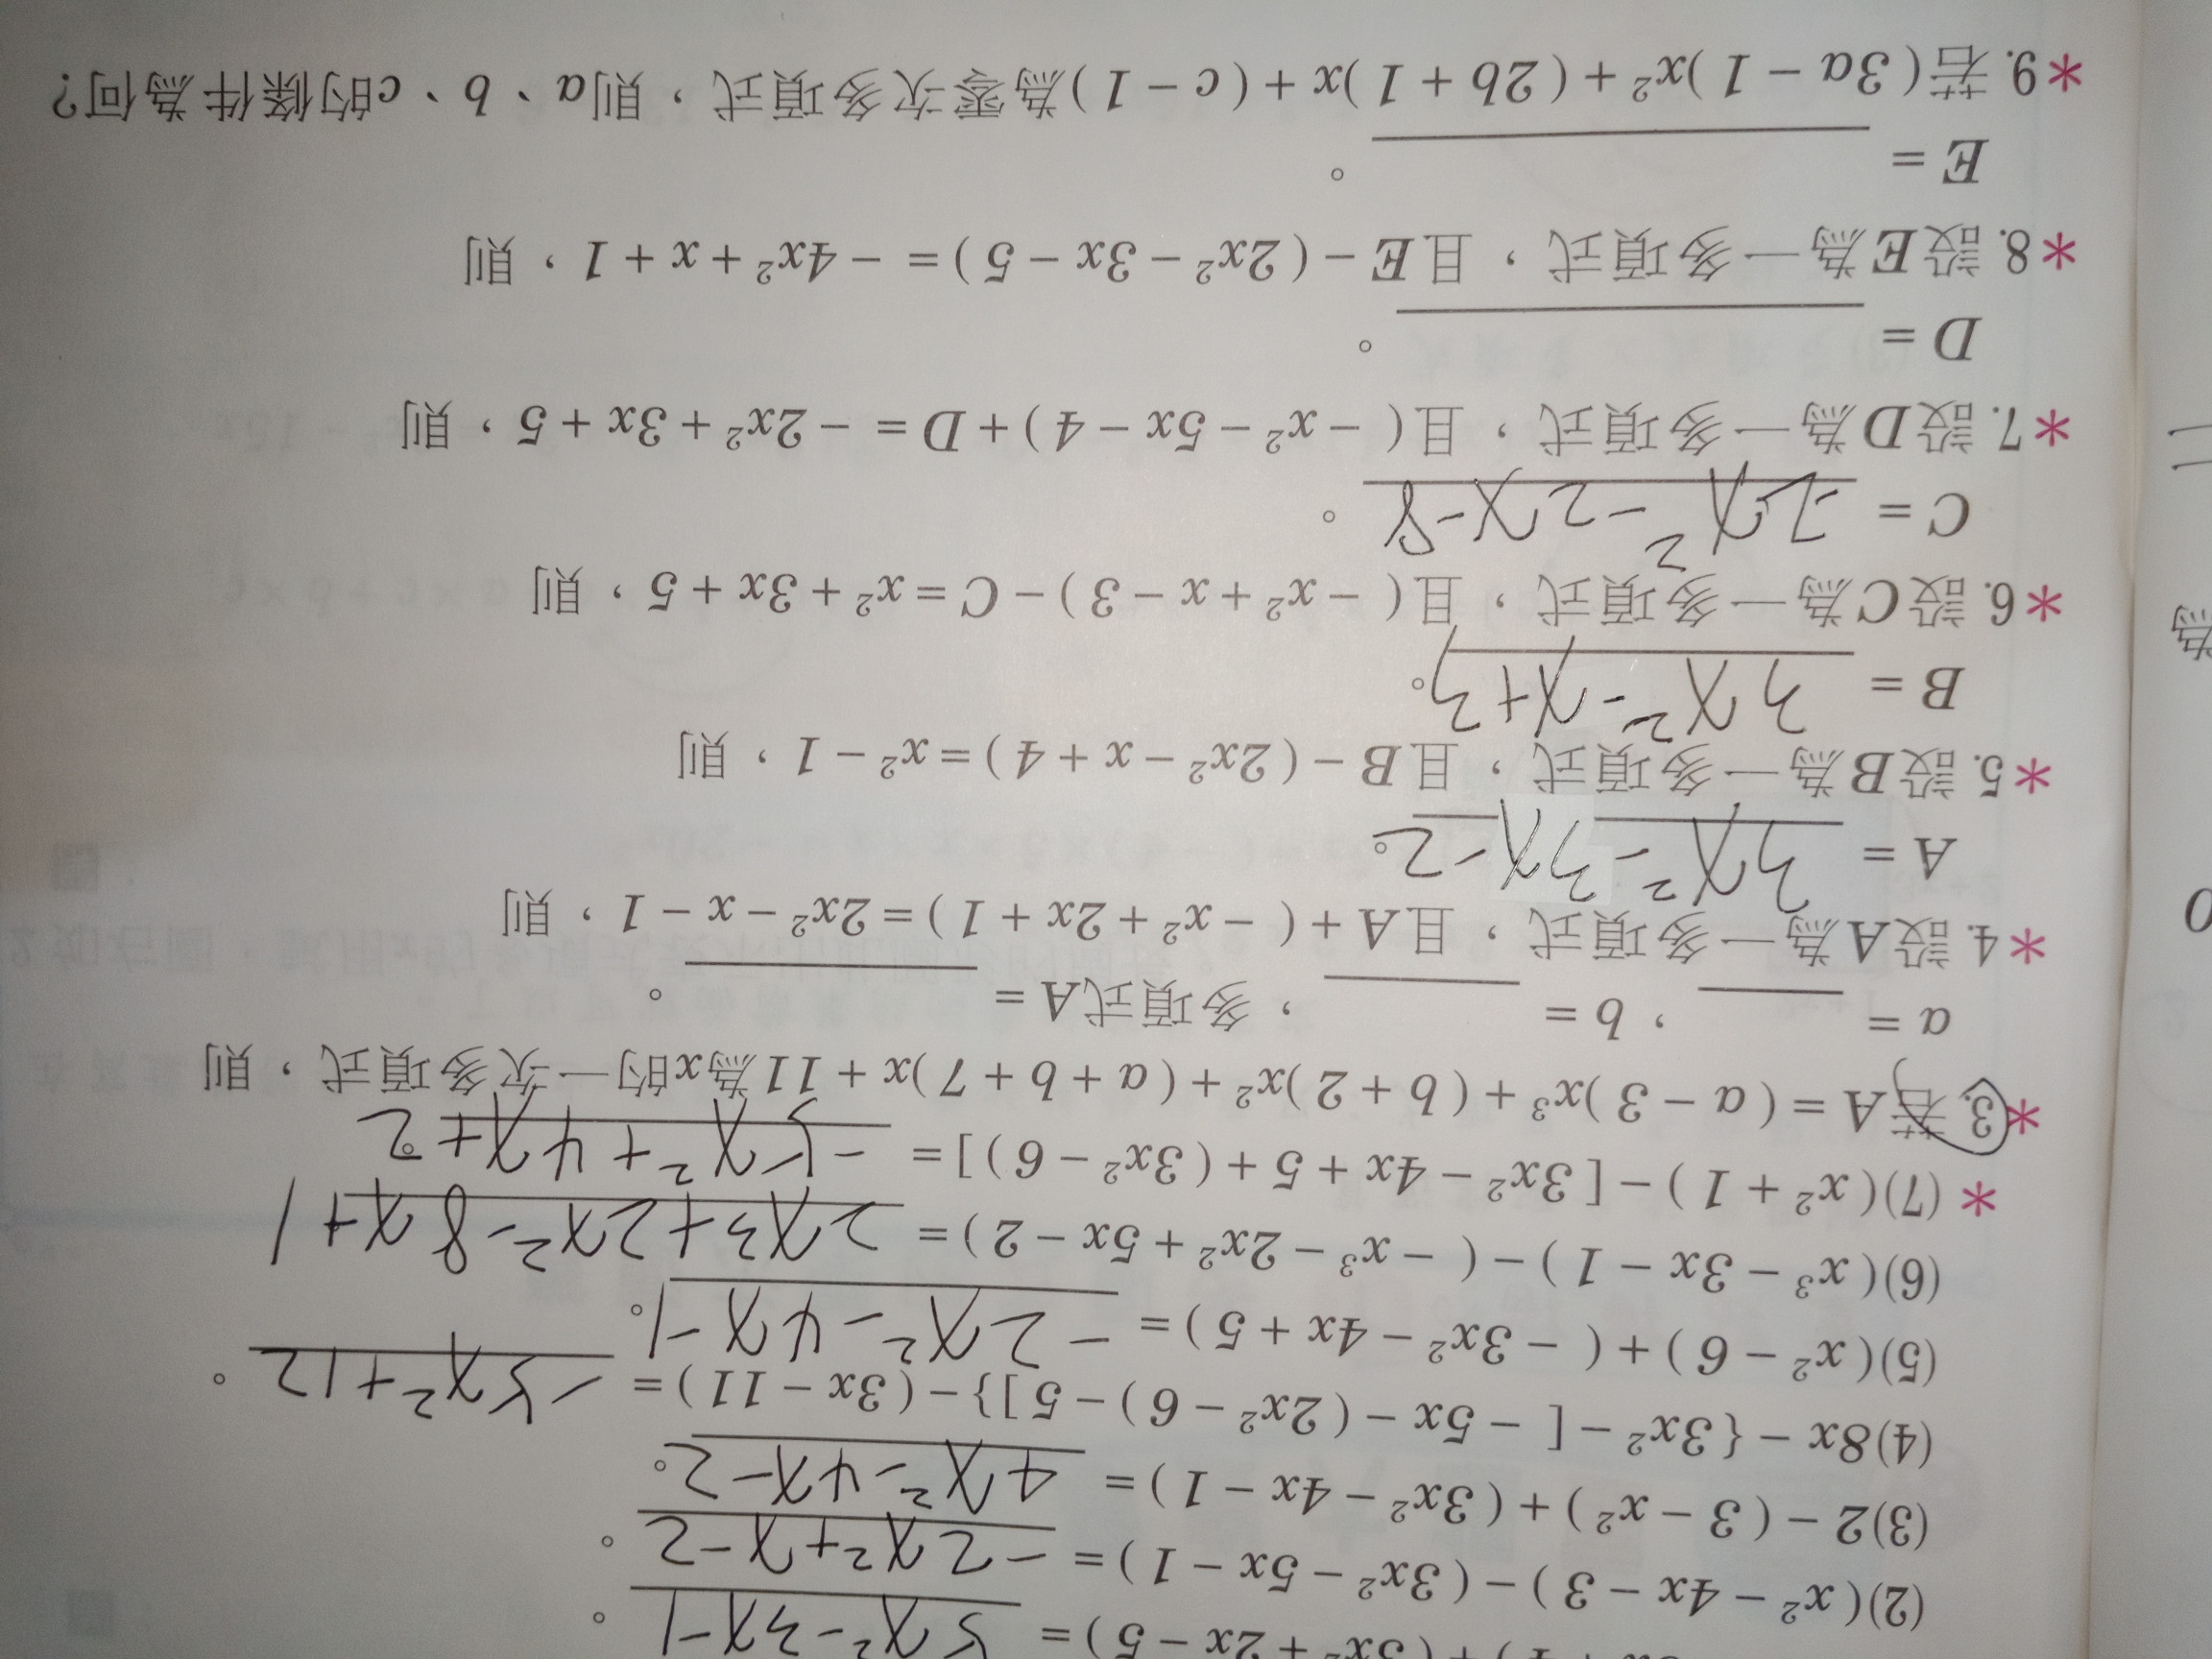 + ( 5x² + 2x − 5 ) = 5x²−3x−1 。
(2)( x² − 4x − 3 ) − ( 3x² − 5x − 1 ) = −2x²+x−2 。
(3)2 − ( 3 − x² ) + ( 3x² − 4x − 1 ) = 4x²−4x−2 。
(4)8x − {3x² − [ − 5x − ( 2x² − 6 ) − 5 ]} − ( 3x − 11 ) = −5x²+12 。
(5)( x² − 6 ) + ( − 3x² − 4x + 5 ) = −2x²−4x−1 。
(6)( x³ − 3x − 1 ) − ( − x³ − 2x² + 5x − 2 ) = 2x3+2x²−8x+1
* (7)( x² + 1 ) − [ 3x² − 4x + 5 + ( 3x² − 6 ) ] = −5x²+4x+2 。
*3. 若A = ( a − 3 )x³ + ( b + 2 )x² + ( a + b + 7 )x + 11為x的一次多項式，則
a = ，b = ，多項式A = 。
*4. 設A為一多項式，且A + ( − x² + 2x + 1 ) = 2x² − x − 1，則
A = 3x²−3x−2 。
*5. 設B為一多項式，且B − ( 2x² − x + 4 ) = x² − 1，則
B = 3x²−x+3 。
*6. 設C為一多項式，且( − x² + x − 3 ) − C = x² + 3x + 5，則
C = −2x²−2x−8 。
*7. 設D為一多項式，且( − x² − 5x − 4 ) + D = − 2x² + 3x + 5，則
D = 。
*8. 設E為一多項式，且E − ( 2x² − 3x − 5 ) = − 4x² + x + 1，則
E = 。
*9. 若( 3a − 1 )x² + ( 2b + 1 )x + ( c − 1 )為零次多項式，則a、b、c的條件為何?
為
0